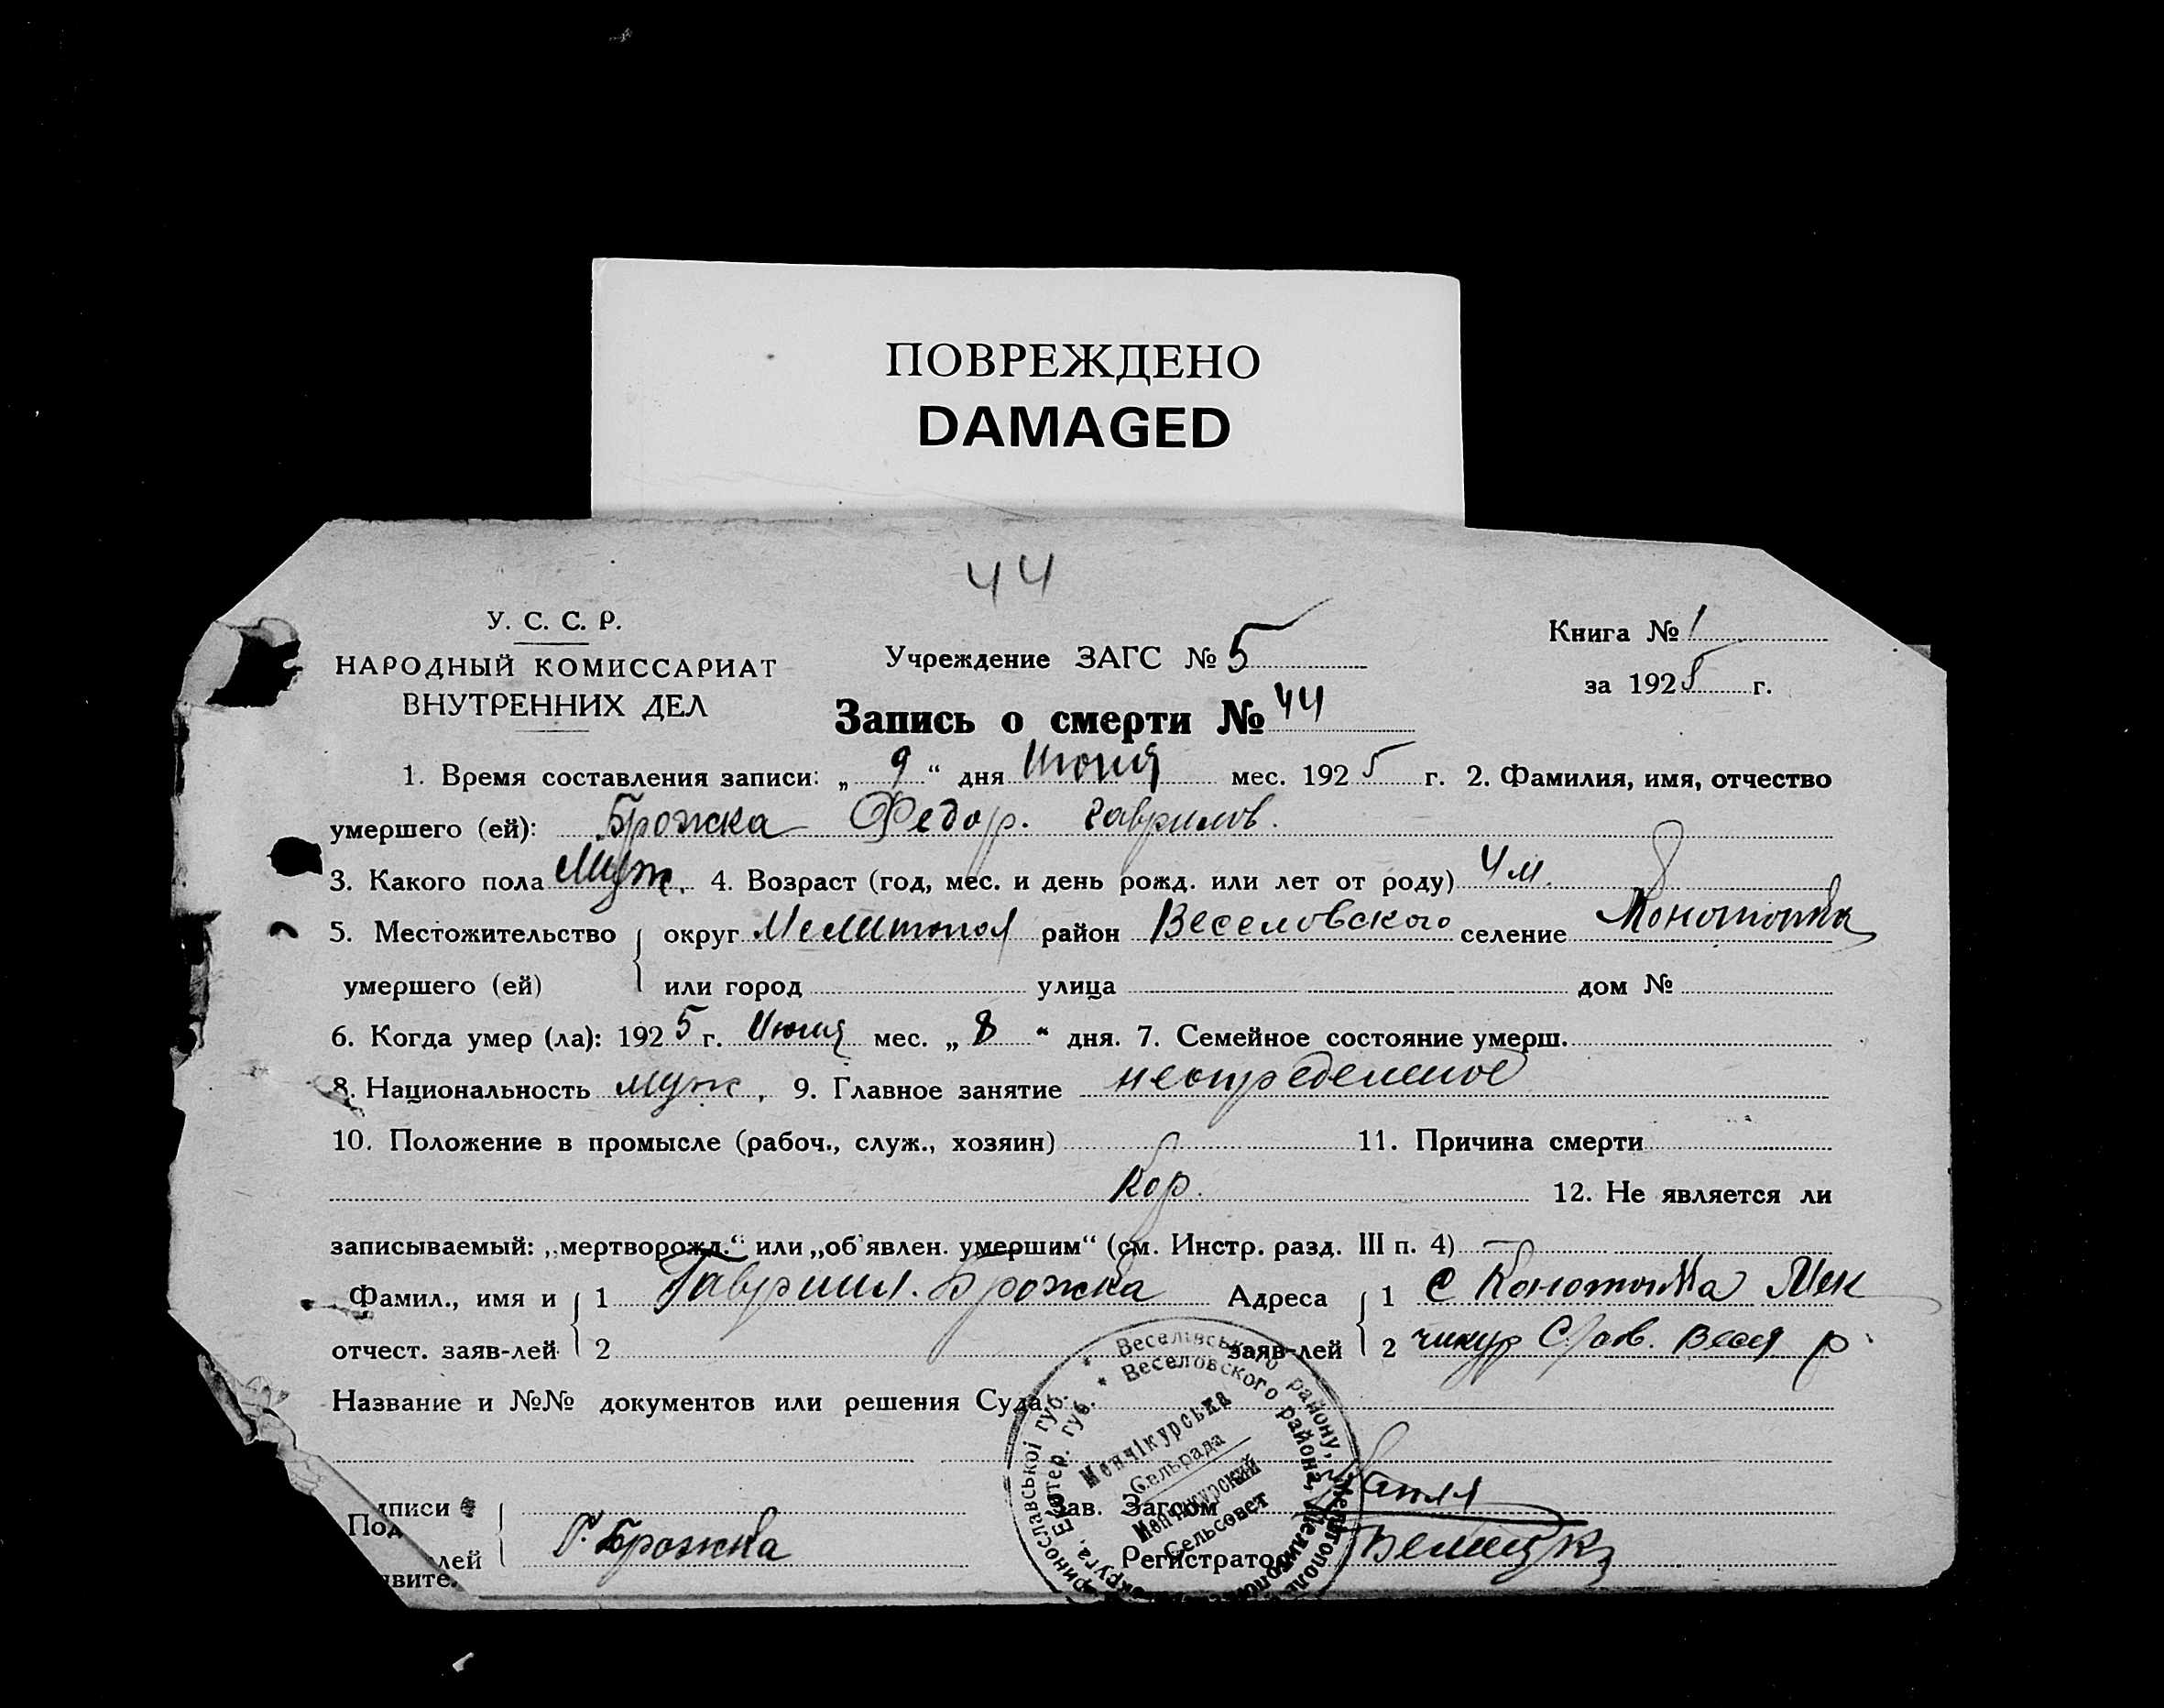 ПОВРЕЖДЕНО
DAMAGED
44
У. С. С. Р.
НАРОДНЫЙ КОМИССАРИАТ
ВНУТРЕННИХ ДЕЛ
Учреждение ЗАГС № 5
Книга № 1
за 1925 г.
Запись о смерти № 44
1. Время составления записи: „ 9 “ дня Июня мес. 1925 г. 2. Фамилия, имя, отчество
умершего (ей): Брожка Федор. Гаврилов.
3. Какого пола Муж. 4. Возраст (год, мес. и день рожд. или лет от роду) 4 м.
5. Местожительство округ Мелитопол район Веселовского селение
умершего (ей) или город улица дом №
6. Когда умер (ла): 1925 г. Июня мес. „ 8 “ дня. 7. Семейное состояние умерш.
8. Национальность муж. 9. Главное занятие неопределеное
10. Положение в промысле (рабоч., служ., хозяин) 11. Причина смерти
Кор. 12. Не является ли
записываемый: „мертворожд.“ или „об'явлен. умершим“ (см. Инстр. разд. III п. 4) —
Фамил., имя и 1 Гавриил. Брожка Адреса 1 с Мен
отчест. заяв-лей 2 заяв-лей 2 чикур С/сов. Весел р.
Название и №№ документов или решения Суда
Подписи
явителей Г. Брожка
Зав. Загсом
Регистратор
Веселівського району, Мелітополь
Веселовского района, Мелитопо
Менчікурська
Сельрада
Менчикурский
Сельсовет
риннославської губ.
округа, Екатер. губ.